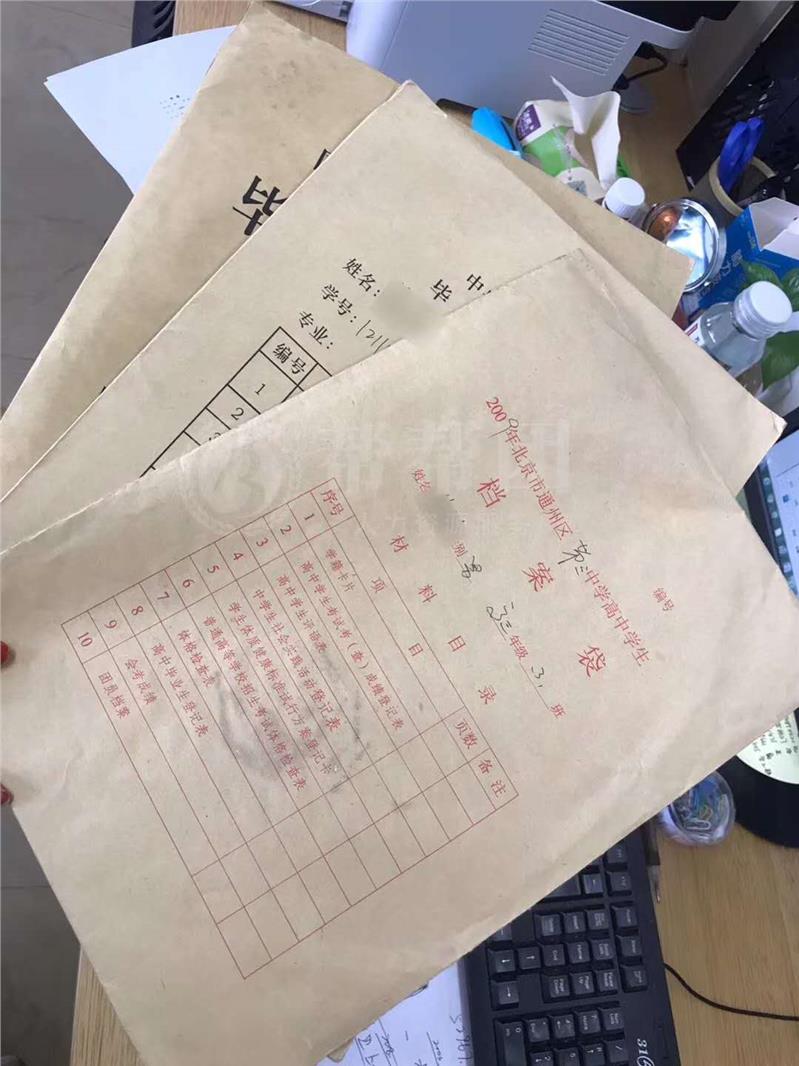 编号
2009年北京市通州区第三中学高中学生
档案袋
姓名 别 男 高三 年级 3 班
材料目录
序号 项目 页数 备注
1 学籍卡片
2 高中学生考试考（查）成绩登记表
3 高中学生评语表
4 中学生社会实践活动登记表
5 学生体质健康标准试行方案登记卡
6 普通高等学校招生考试体格检查表
7 体格检查表
8 高中毕业生登记表
9 会考成绩
10 团员档案
中
毕
姓名：
学号：1211
专业：
编号
1
2
3
毕
帮帮团